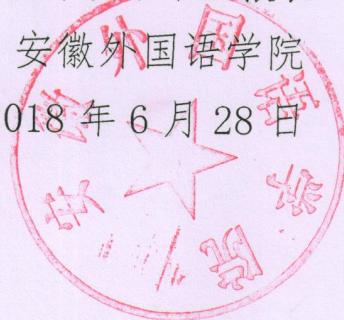 安徽外国语学院
018 年 6 月 28 日
安徽外国语学院